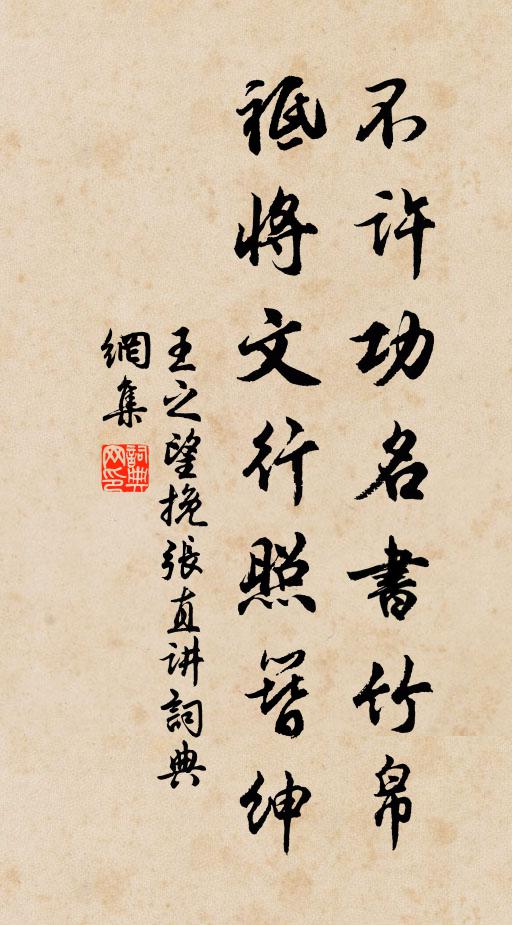 不许功名書竹帛
祗将文行照簪紳
王之望挽張直讲詞典
網集
詞典網印